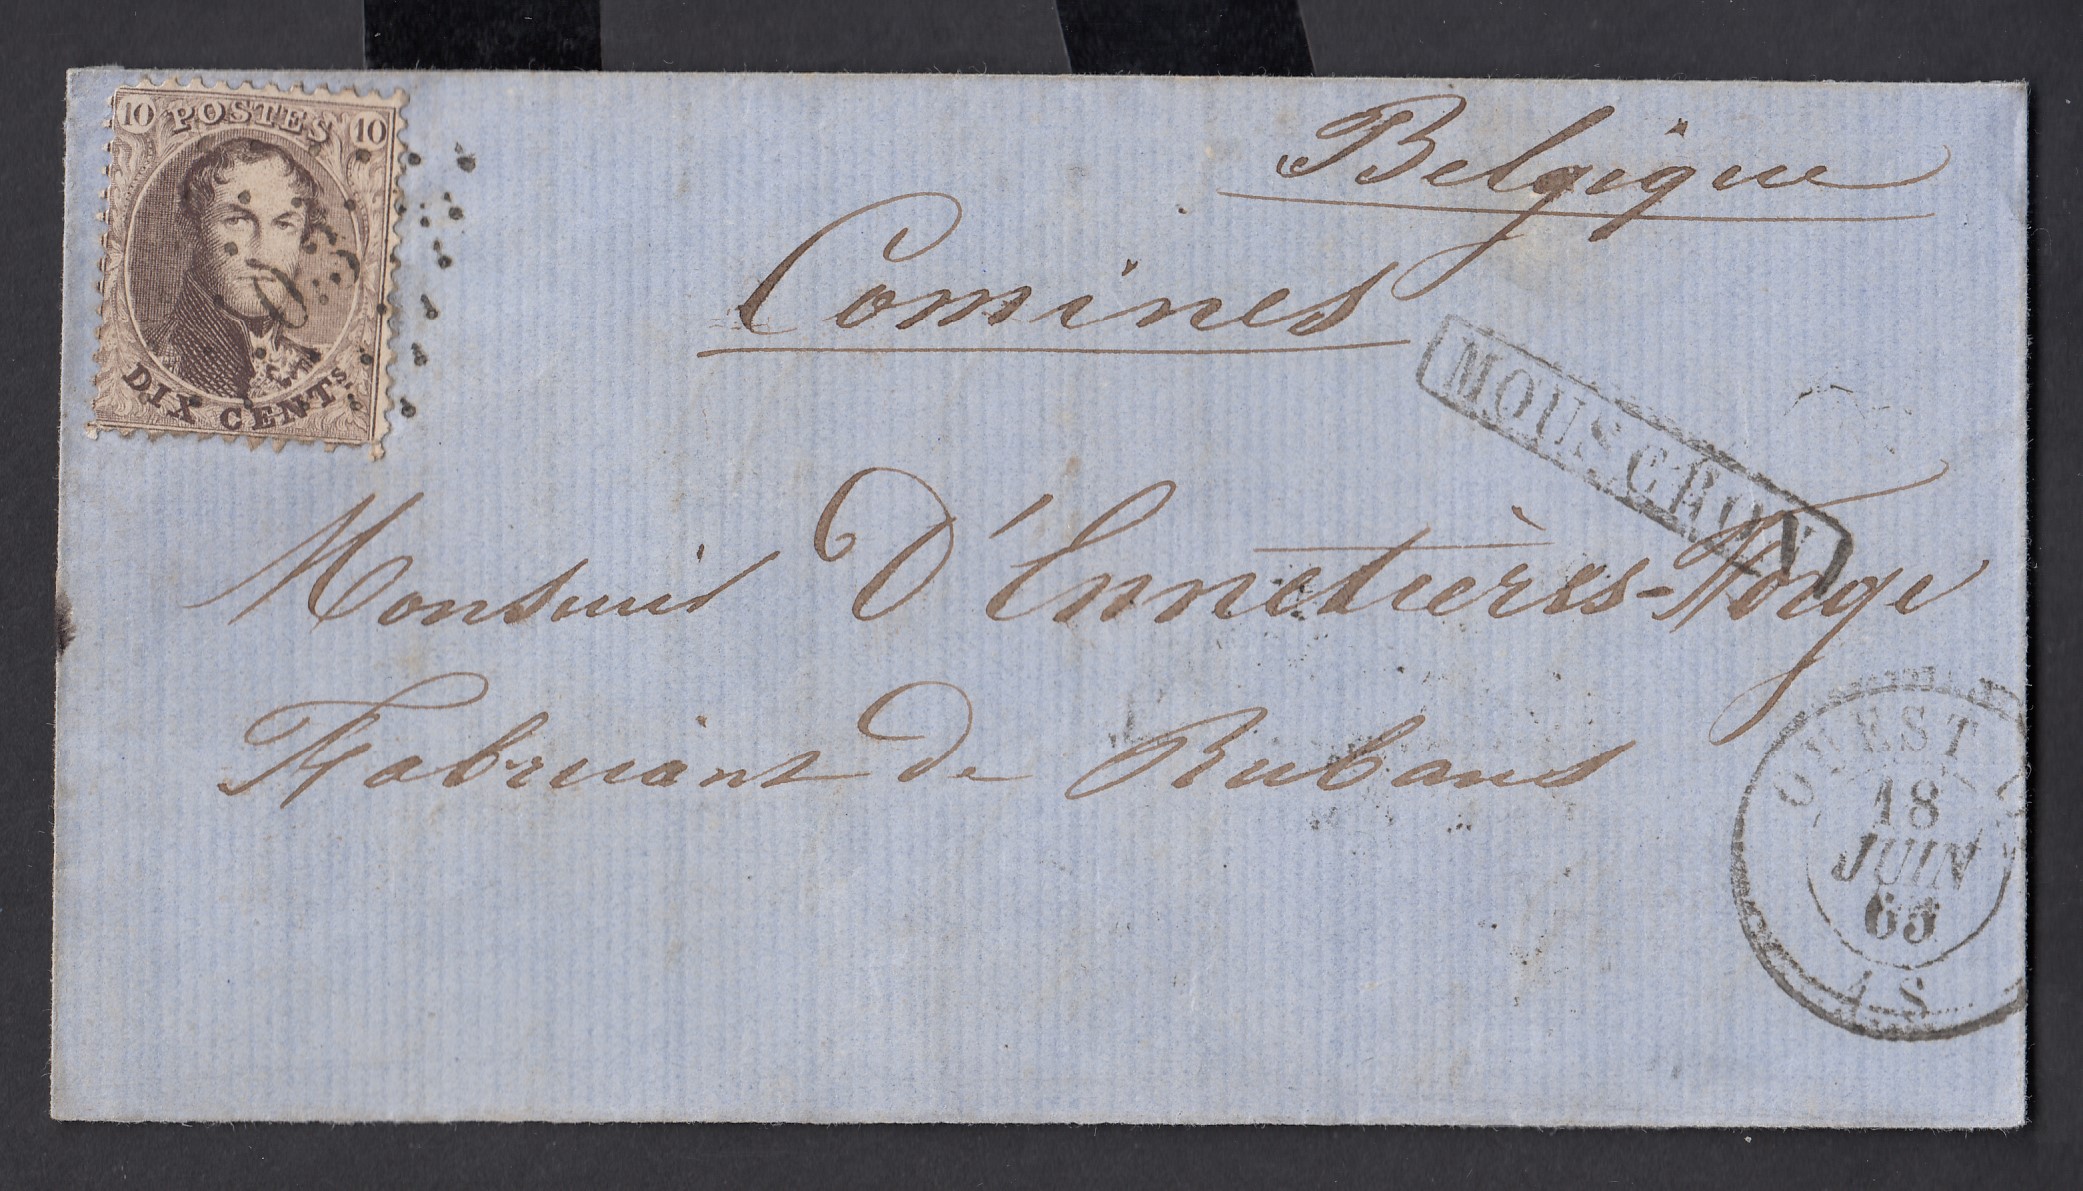 10 POSTES 10
DIX CENTS.
Belgique
Comines
MOUSCRON
Monsieur D'Ennetières-Forge
Fabricant de Rubans
OUEST
18
JUIN
65